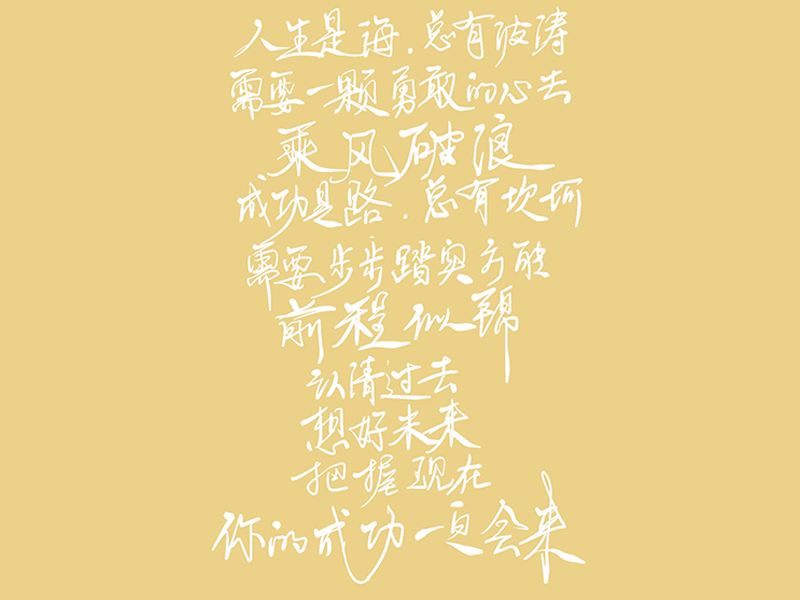 人生是海.总有波涛
需要一颗勇敢的心去
乘风破浪
成功是路.总有坎坷
需要步步踏实方能
前程似锦
认清过去
想好未来
把握现在
你的成功一定会来